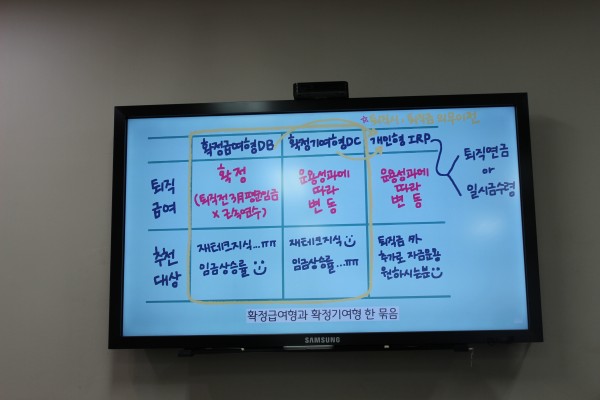 확정급여형DB 확정기여형DC 개인형 IRP
퇴직
급여
확정
(퇴직전 3개월 평균임금
× 근속연수)
운용성과에
따라
변동
운용성과에
따라
변동
퇴직연금
or
일시금수령
추천
대상
재테크지식...ㅠㅠ
임금상승률
재테크지식
임금상승률...ㅠㅠ
퇴직금 外
추가로 자금운용
원하시는분
확정급여형과 확정기여형 한 묶음
SAMSUNG